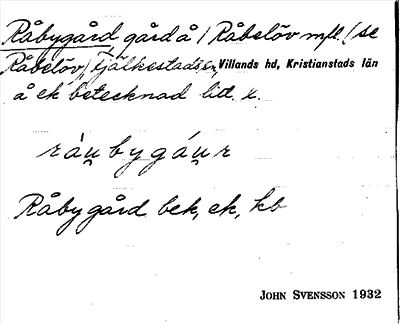 Råbygård gård å / Råbelöv m.fl. (se
Råbelöv) Fjälkestads sn, Villands hd, Kristianstads län
å ek betecknad lit. x.
ràu̯bygáu̯r
Råbygård bek, ek, kb
JOHN SVENSSON 1932